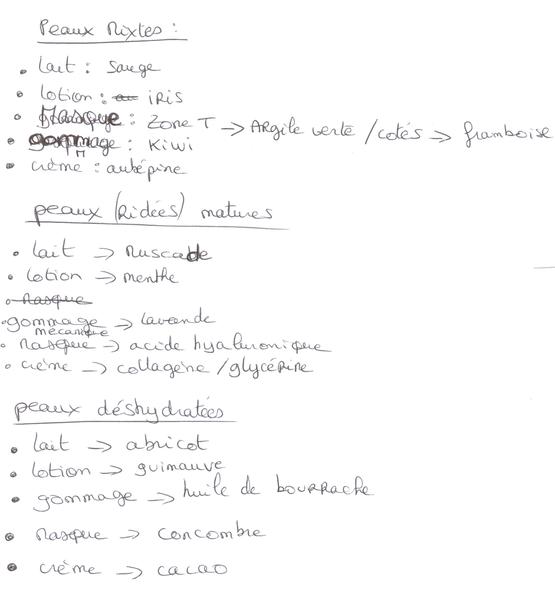 Peaux Mixtes :
• lait : Sauge
• lotion : IRIS
• Masque : Zone T → ARgile verte / cotés → framboise
• gommage : Kiwi
• crème : aubépine
peaux (Ridées) matures
• lait → Muscade
• lotion → menthe
• Masque
• gommage mécanique → lavande
• Masque → acide hyaluronique
• crème → collagène / glycéRine
peaux déshydratées
• lait → abricot
• lotion → guimauve
• gommage → huile de bouRRache
• Masque → concombre
• crème → cacao